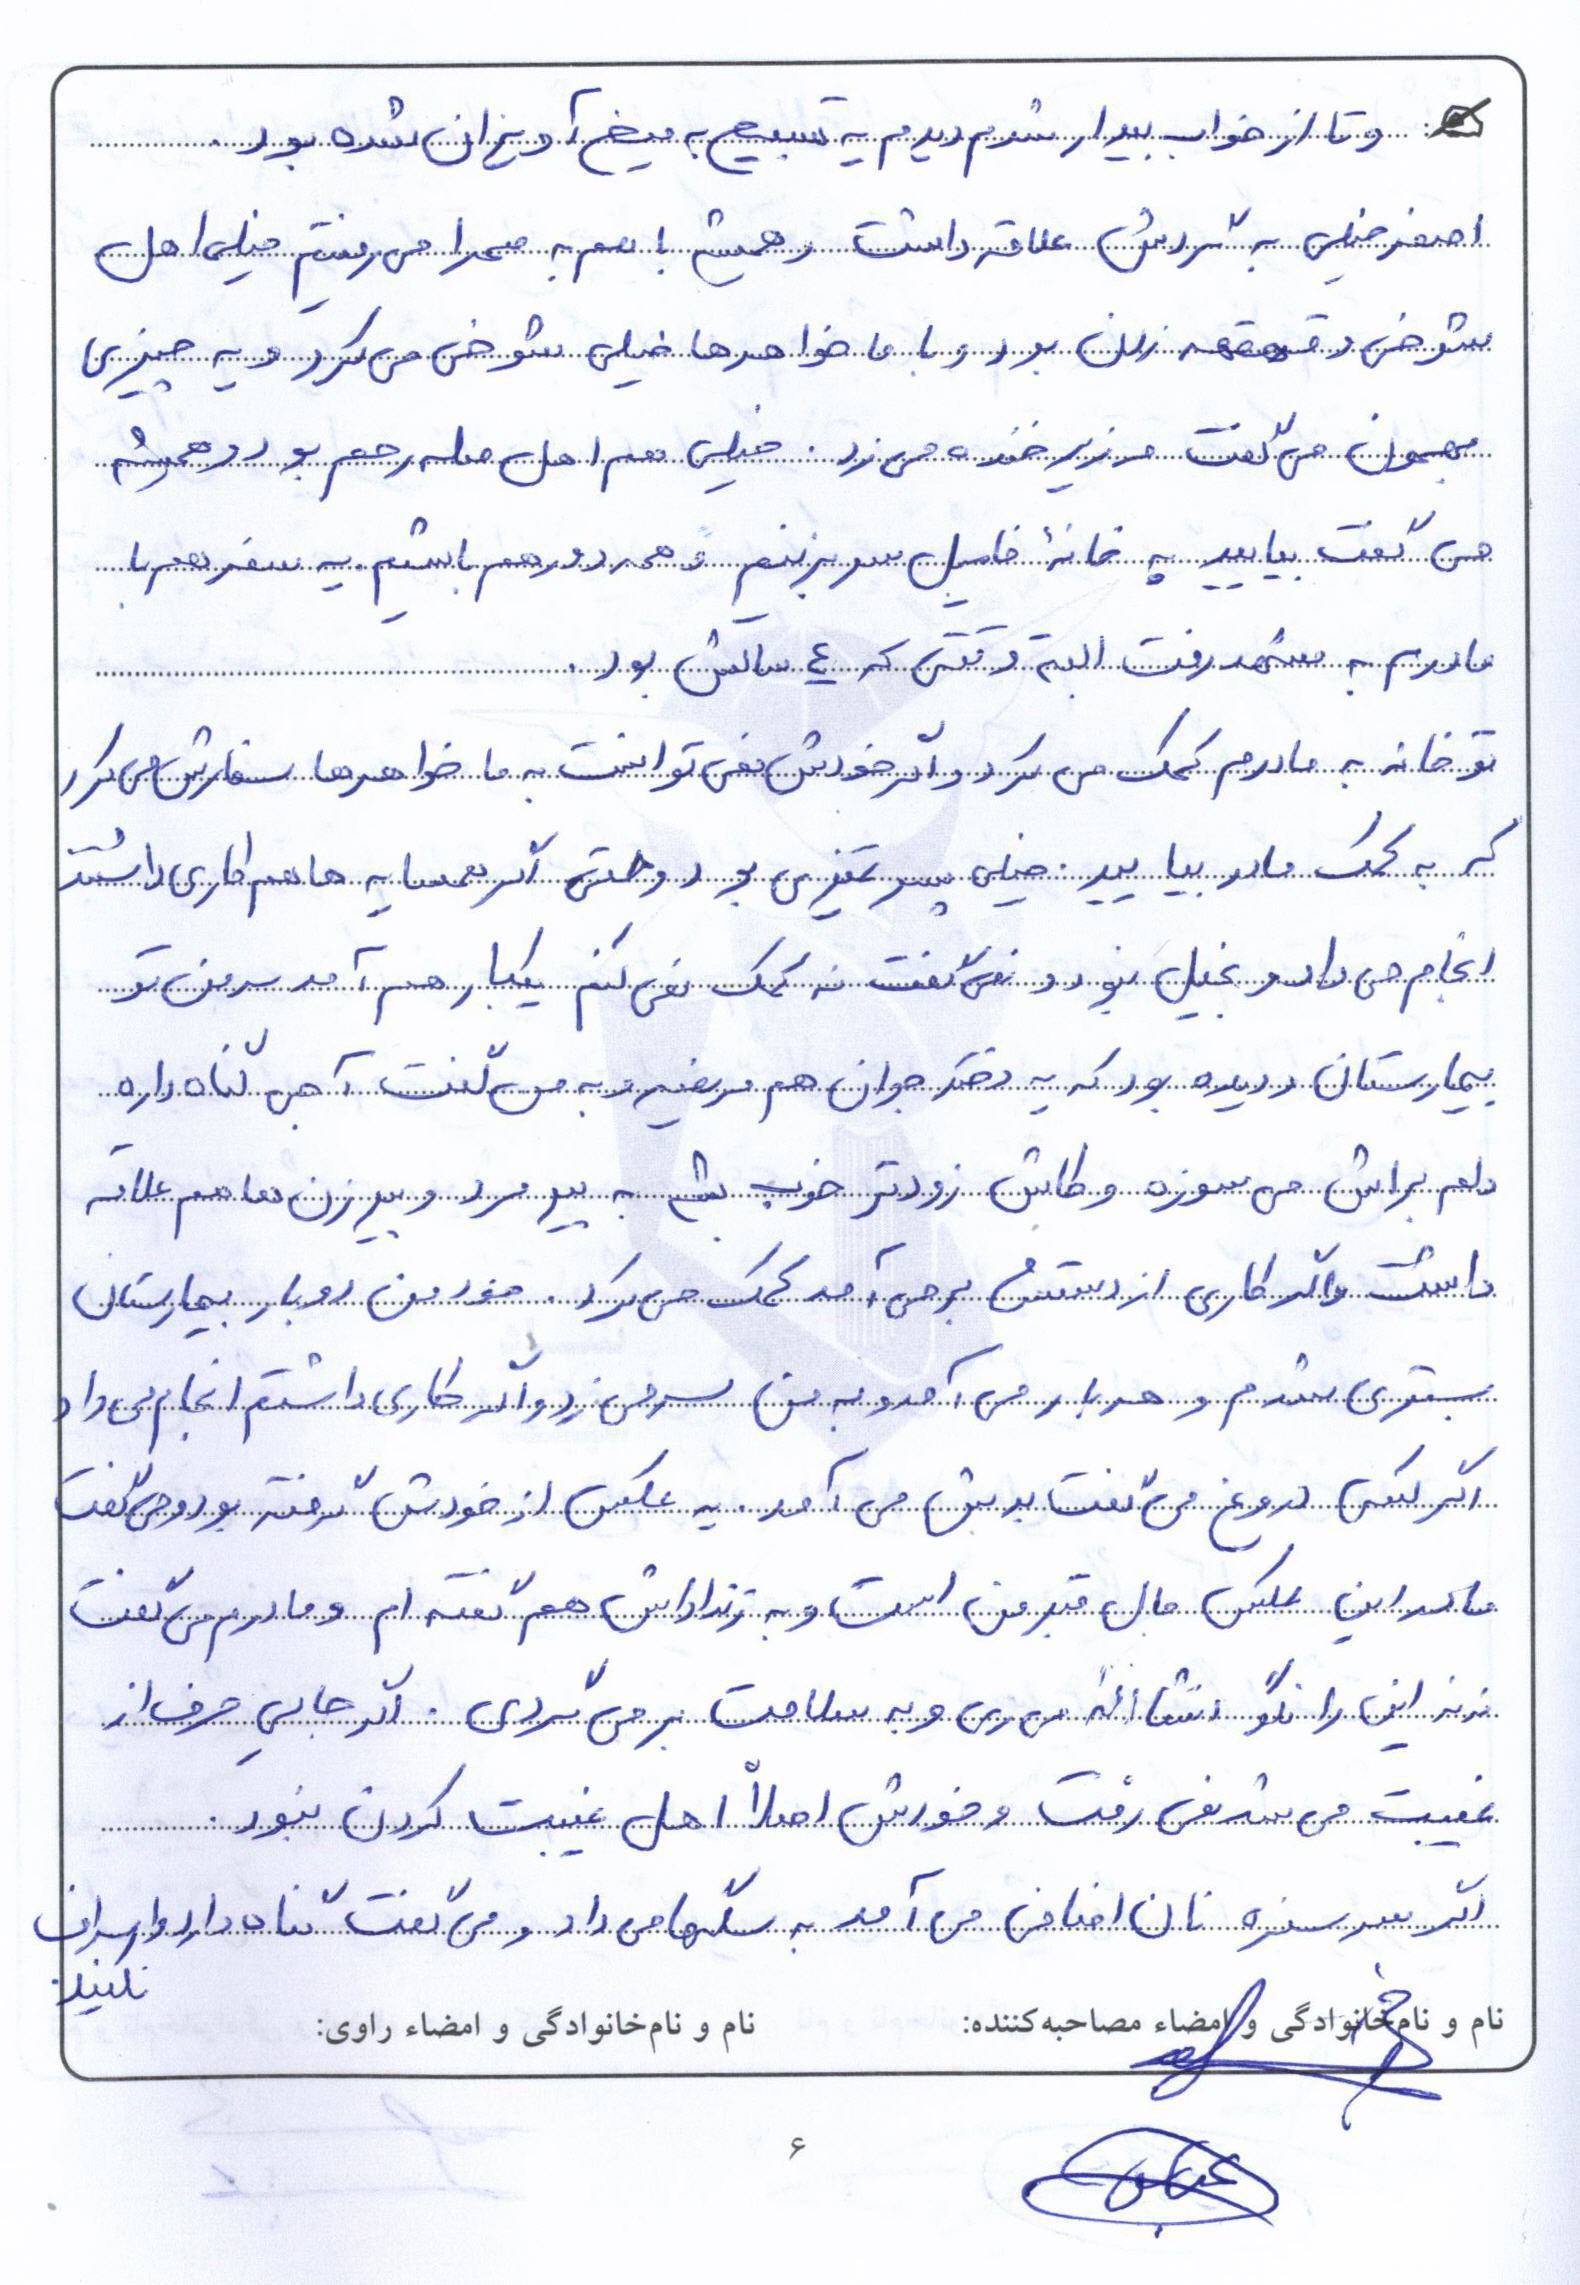 و تا از خواب بیدار شدم دیدم یه تسبیح به میخ آویزان شده بود.
اصغر خیلی به گردش علاقه داشت و همیشه با هم به صحرا می رفتیم خیلی اهل
شوخی و قهقهه زدن بود و با ما خواهرها خیلی شوخی می کرد و یه چیزی
بهمون می گفت و زیر خنده می زد. خیلی هم اهل صله رحم بود و همیشه
می گفت بیایید به خانۀ فامیل سر بزنیم و همه دور هم باشیم. یه سفر هم با
مادرم به مشهد رفت البته وقتی که ٤ سالش بود.
تو خانه به مادرم کمک می کرد و اگر خودش نمی توانست به ما خواهرها سفارش می کرد
که به کمک مادر بیایید. خیلی پسر تمیزی بود و حتی اگر همسایه ها هم کاری داشتند
انجام می داد و بخیل نبود و نمی گفت نه کمک نمی کنم یکبار هم آمد سر من تو
بیمارستان و دیده بود که یه دختر جوان هم مریضه و به من گفت آجی گناه داره
دلم براش می سوزه و کاش زودتر خوب بشه به پیر مرد و پیر زن ها هم علاقه
داشت و اگر کاری از دستش بر می آمد کمک می کرد. خود من دو بار بیمارستان
بستری شدم و هر بار می آمد و به من سر می زد و اگر کاری داشتم انجام می داد
اگر کسی دروغ می گفت بدش می آمد. یه عکس از خودش گرفته بود و می گفت
مادر این عکس مال قبر من است و به زنداداش هم گفته ام و مادرم می گفت
نه نه این را نگو انشاالله می ری و به سلامت بر می گردی. اگر جایی حرف از
غیبت می شد نمی رفت و خودش اصلاً اهل غیبت کردن نبود.
اگر سر سفره نان اضافی می آمد به سگها می داد و می گفت گناه دارد و اسراف
نکنید.
نام و نام‌خانوادگی و امضاء مصاحبه‌کننده: نام و نام‌خانوادگی و امضاء راوی:
۶